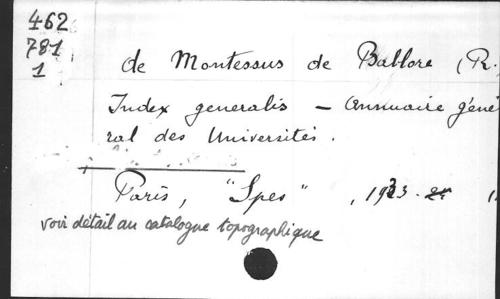 462
781
1
de Montessus de Ballore (R.
Index generalis – Annuaire géné
ral des Universités.
Paris, "Spes", 1923-
voir détail au catalogue topographique